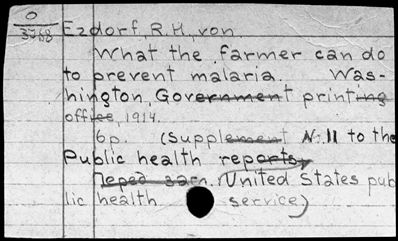 O
3768
Ezdorf, R.H. von.
What the farmer can do
to prevent malaria. Was-
hington, Government printing
office, 1914.
6p. (Supplement N: 11 to the
Public health reports,
United States pub
lic health service)